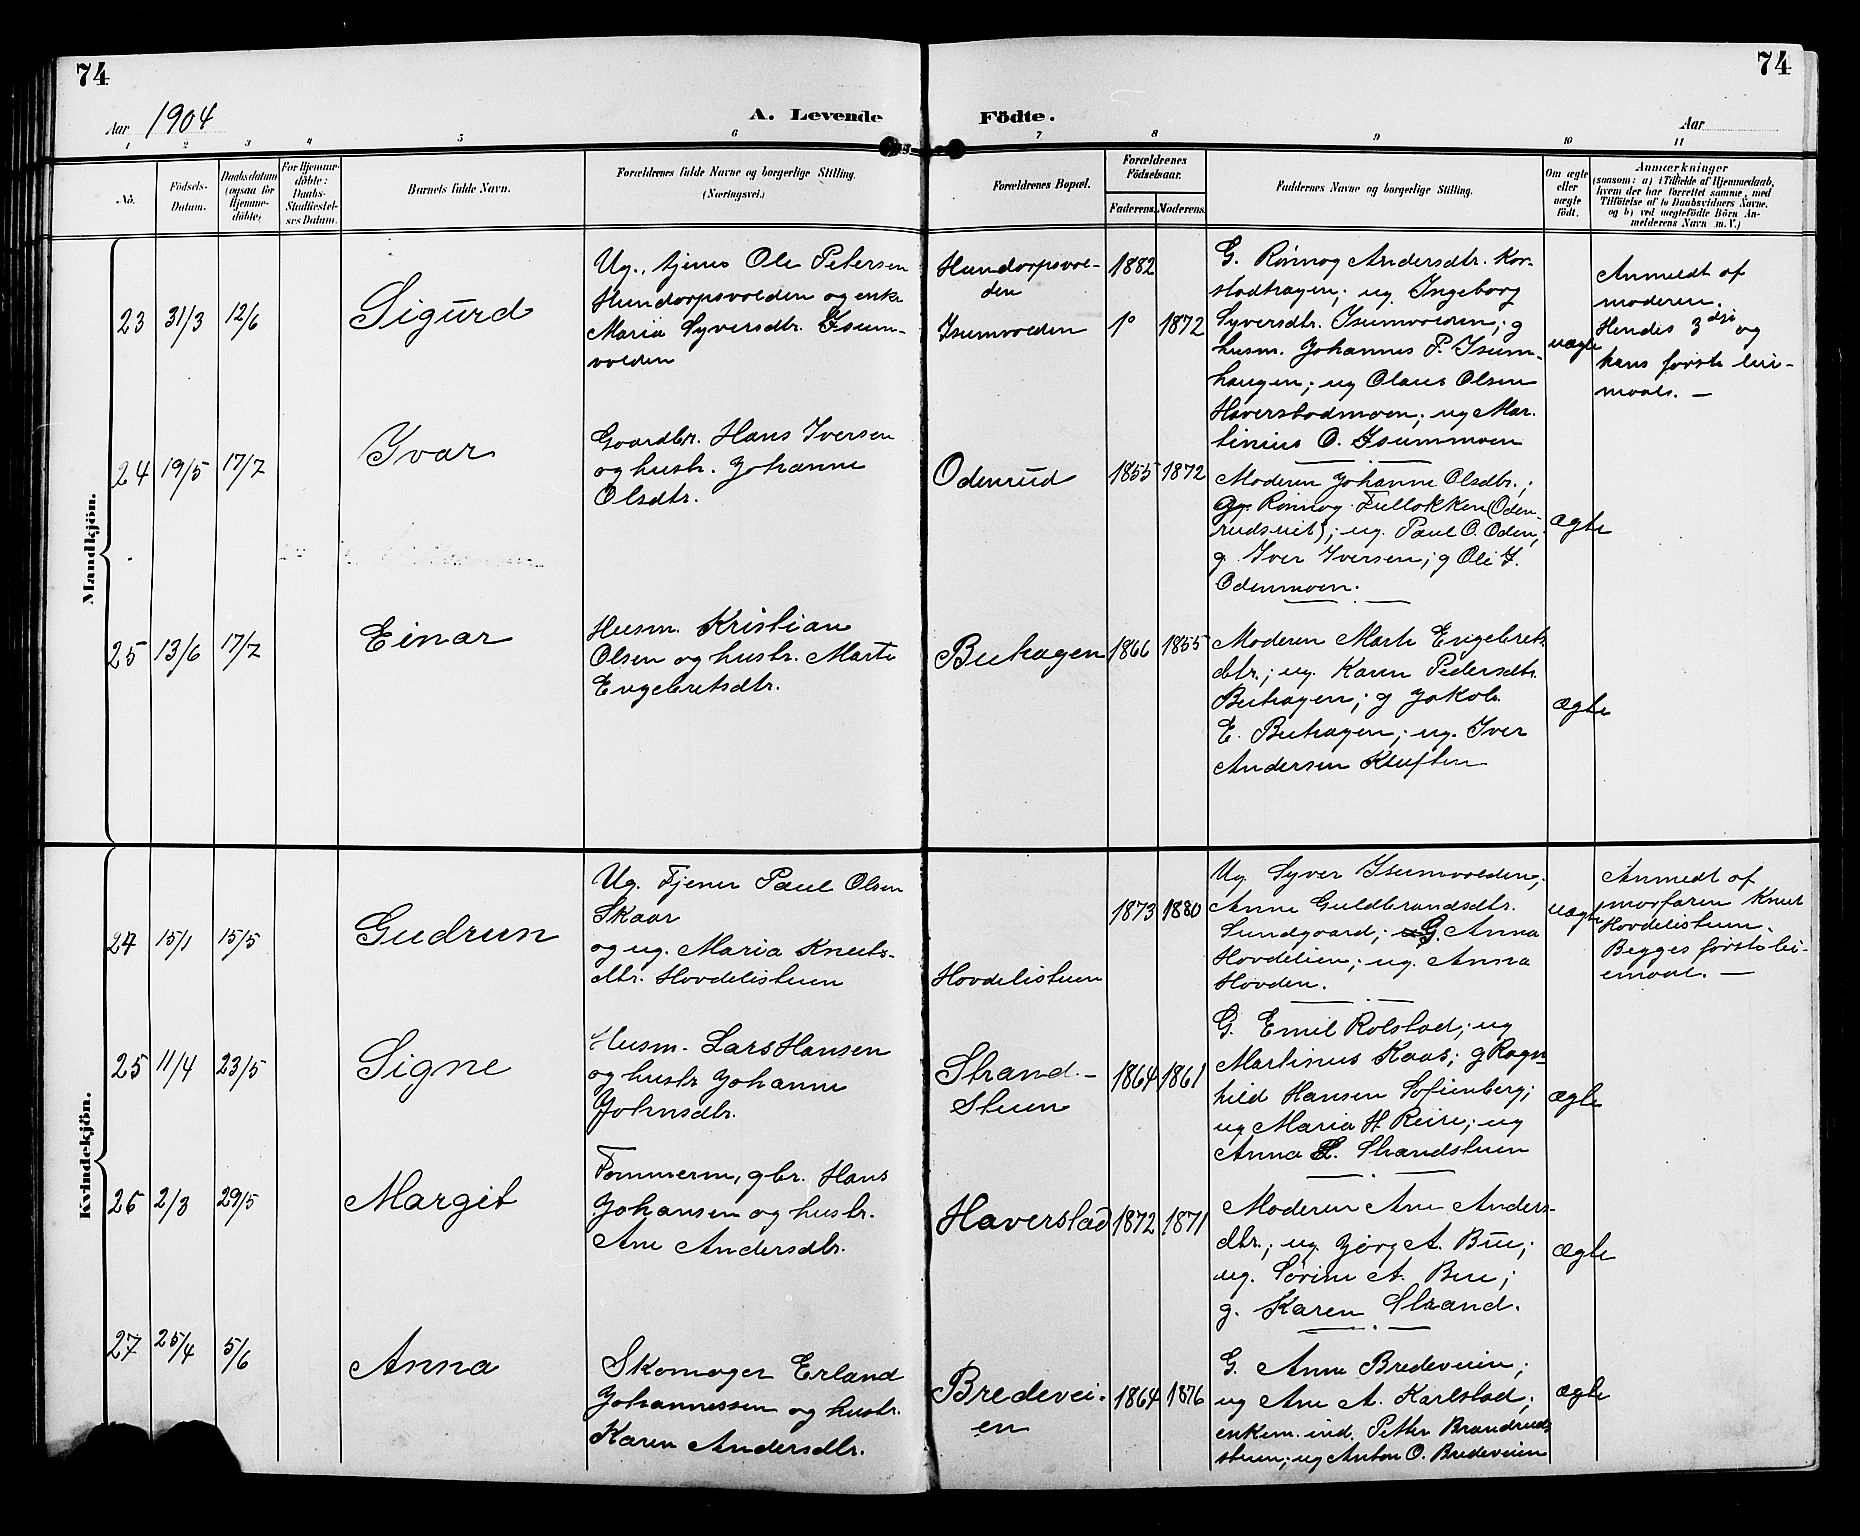 74
74
Aar 1904
A. Levende
Födte.
Aar
1 2 3 4 5 6 7 8 9 10 11
No.
Födsels-Datum.
Daabsdatum (ogsaa for Hjemme-döbte)
For Hjemme-döbte: Daabs-Stadfæstelses Datum.
Barnets fulde Navn.
Forældrenes fulde Navne og borgerlige Stilling.
(Næringsvei.)
Forældrenes Bopæl.
Forældrenes Födselsaar.
Faderens. Moderens.
Faddernes Navne og borgerlige Stilling.
Om ægte eller uægte födt.
Anmærkninger
(saasom: a) i Tilfælde af Hjemmedaab,
hvem der har forrettet samme, med
Tilföielse af to Daabsvidners Navne.
og b) ved uægtefödte Börn An-
melderens Navn m. V.)
Mandkjön.
23 31/3 12/6
Sigurd
Ug., tjener Ole Petersen
Hundorpsvolden og enke
Maria Syversdtr. Isum-
volden
Hundorpsvol-
den
Isumvolden
1882
1° 1872
G. Rønnog Andersdtr. Kor-
stadhagen; ug Ingeborg
Syversdtr. Isumvolden; g
husm. Johannes P. Isum-
haugen; ug Olaus Olsen
Haverstadmoen; ug Mar-
tinius O. Isummoen
uægte
Anmeldt af
moderen.
Hendes 3die og
hans første lei-
maal. —
24 19/5 17/7
Ivar
Gaardbr. Hans Iversen
og hustr. Johanne
Olsdtr.
Odenrud
1855 1872
Moderen Johanne Olsdtr.;
Rønnog Fullokken (Oden-
rudseit); ug. Paul O. Oden;
g. Iver Iversen; g Ole I.
Odenmoen.
ægte
25 13/6 17/7
Einar
Husm. Kristian
Olsen og hustr. Marte
Engebretsdtr.
Buhagen
1866 1855
Moderen Marte Engebrets-
dtr.; ug. Karen Pedersdtr.
Buhagen; g Jakob
E. Buhagen; ug. Iver
Andersen Kluften
ægte
Kvindekjön.
24 15/1 15/5
Gudrun
Ug. Tjener Paul Olsen
Skaar
og ug. Maria Knuts-
dtr. Hovdelistuen
Hovdelistuen
1873 1880
Ug. Syver Isumvolden;
Anne Guldbrandsdtr.
Sundgaard; G. Anna
Hovdelien; ug. Anna
Hovden.
uægte
Anmedt af
morfaren Knut
Hovdelistuen.
Begges første lei-
emaal. —
25 11/4 23/5
Signe
Husm. Lars Hansen
og hustr Johanne
Johnsdtr.
Strand-
stuen
1864 1861
G. Emil Rolstad; ug
Martinus Kaas; g Ragn-
hild Hansen Sofienberg;
ug Maria H. Reire; ug
Anna L. Strandstuen
ægte
26 2/3 29/5
Margit
Tømmerm, gbr. Hans
Johansen og hustr.
Ane Andersdtr.
Haverstad
1872 1871
Moderen Ane Anders-
dtr.; ug. Jörg A. Bue;
ug. Sørine A. Bue;
g. Karen Strand.
ægte
27 25/4 5/6
Anna
Skomager Erland
Johannessen og hustr.
Karen Andersdtr.
Bredevei-
en
1864 1876
G. Anne Bredeveien;
ug Ane A. Karlstad;
enkem. ind. Petter Brandruds-
stuen; ug Anton O. Bredeveien
ægte